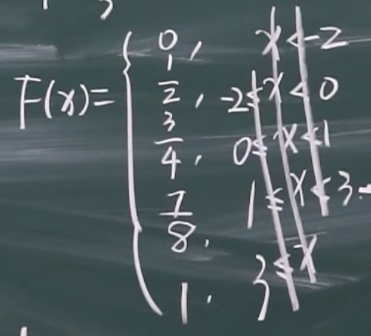 F(x)= { 0, x<-2
1/2, -2≤x<0
3/4, 0≤x<1
7/8, 1≤x<3
1. 3≤x